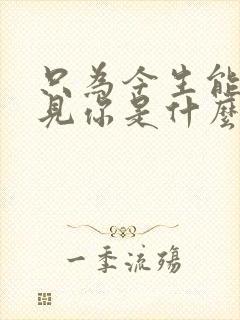 只為今生能
見你是什麼
一季流殤